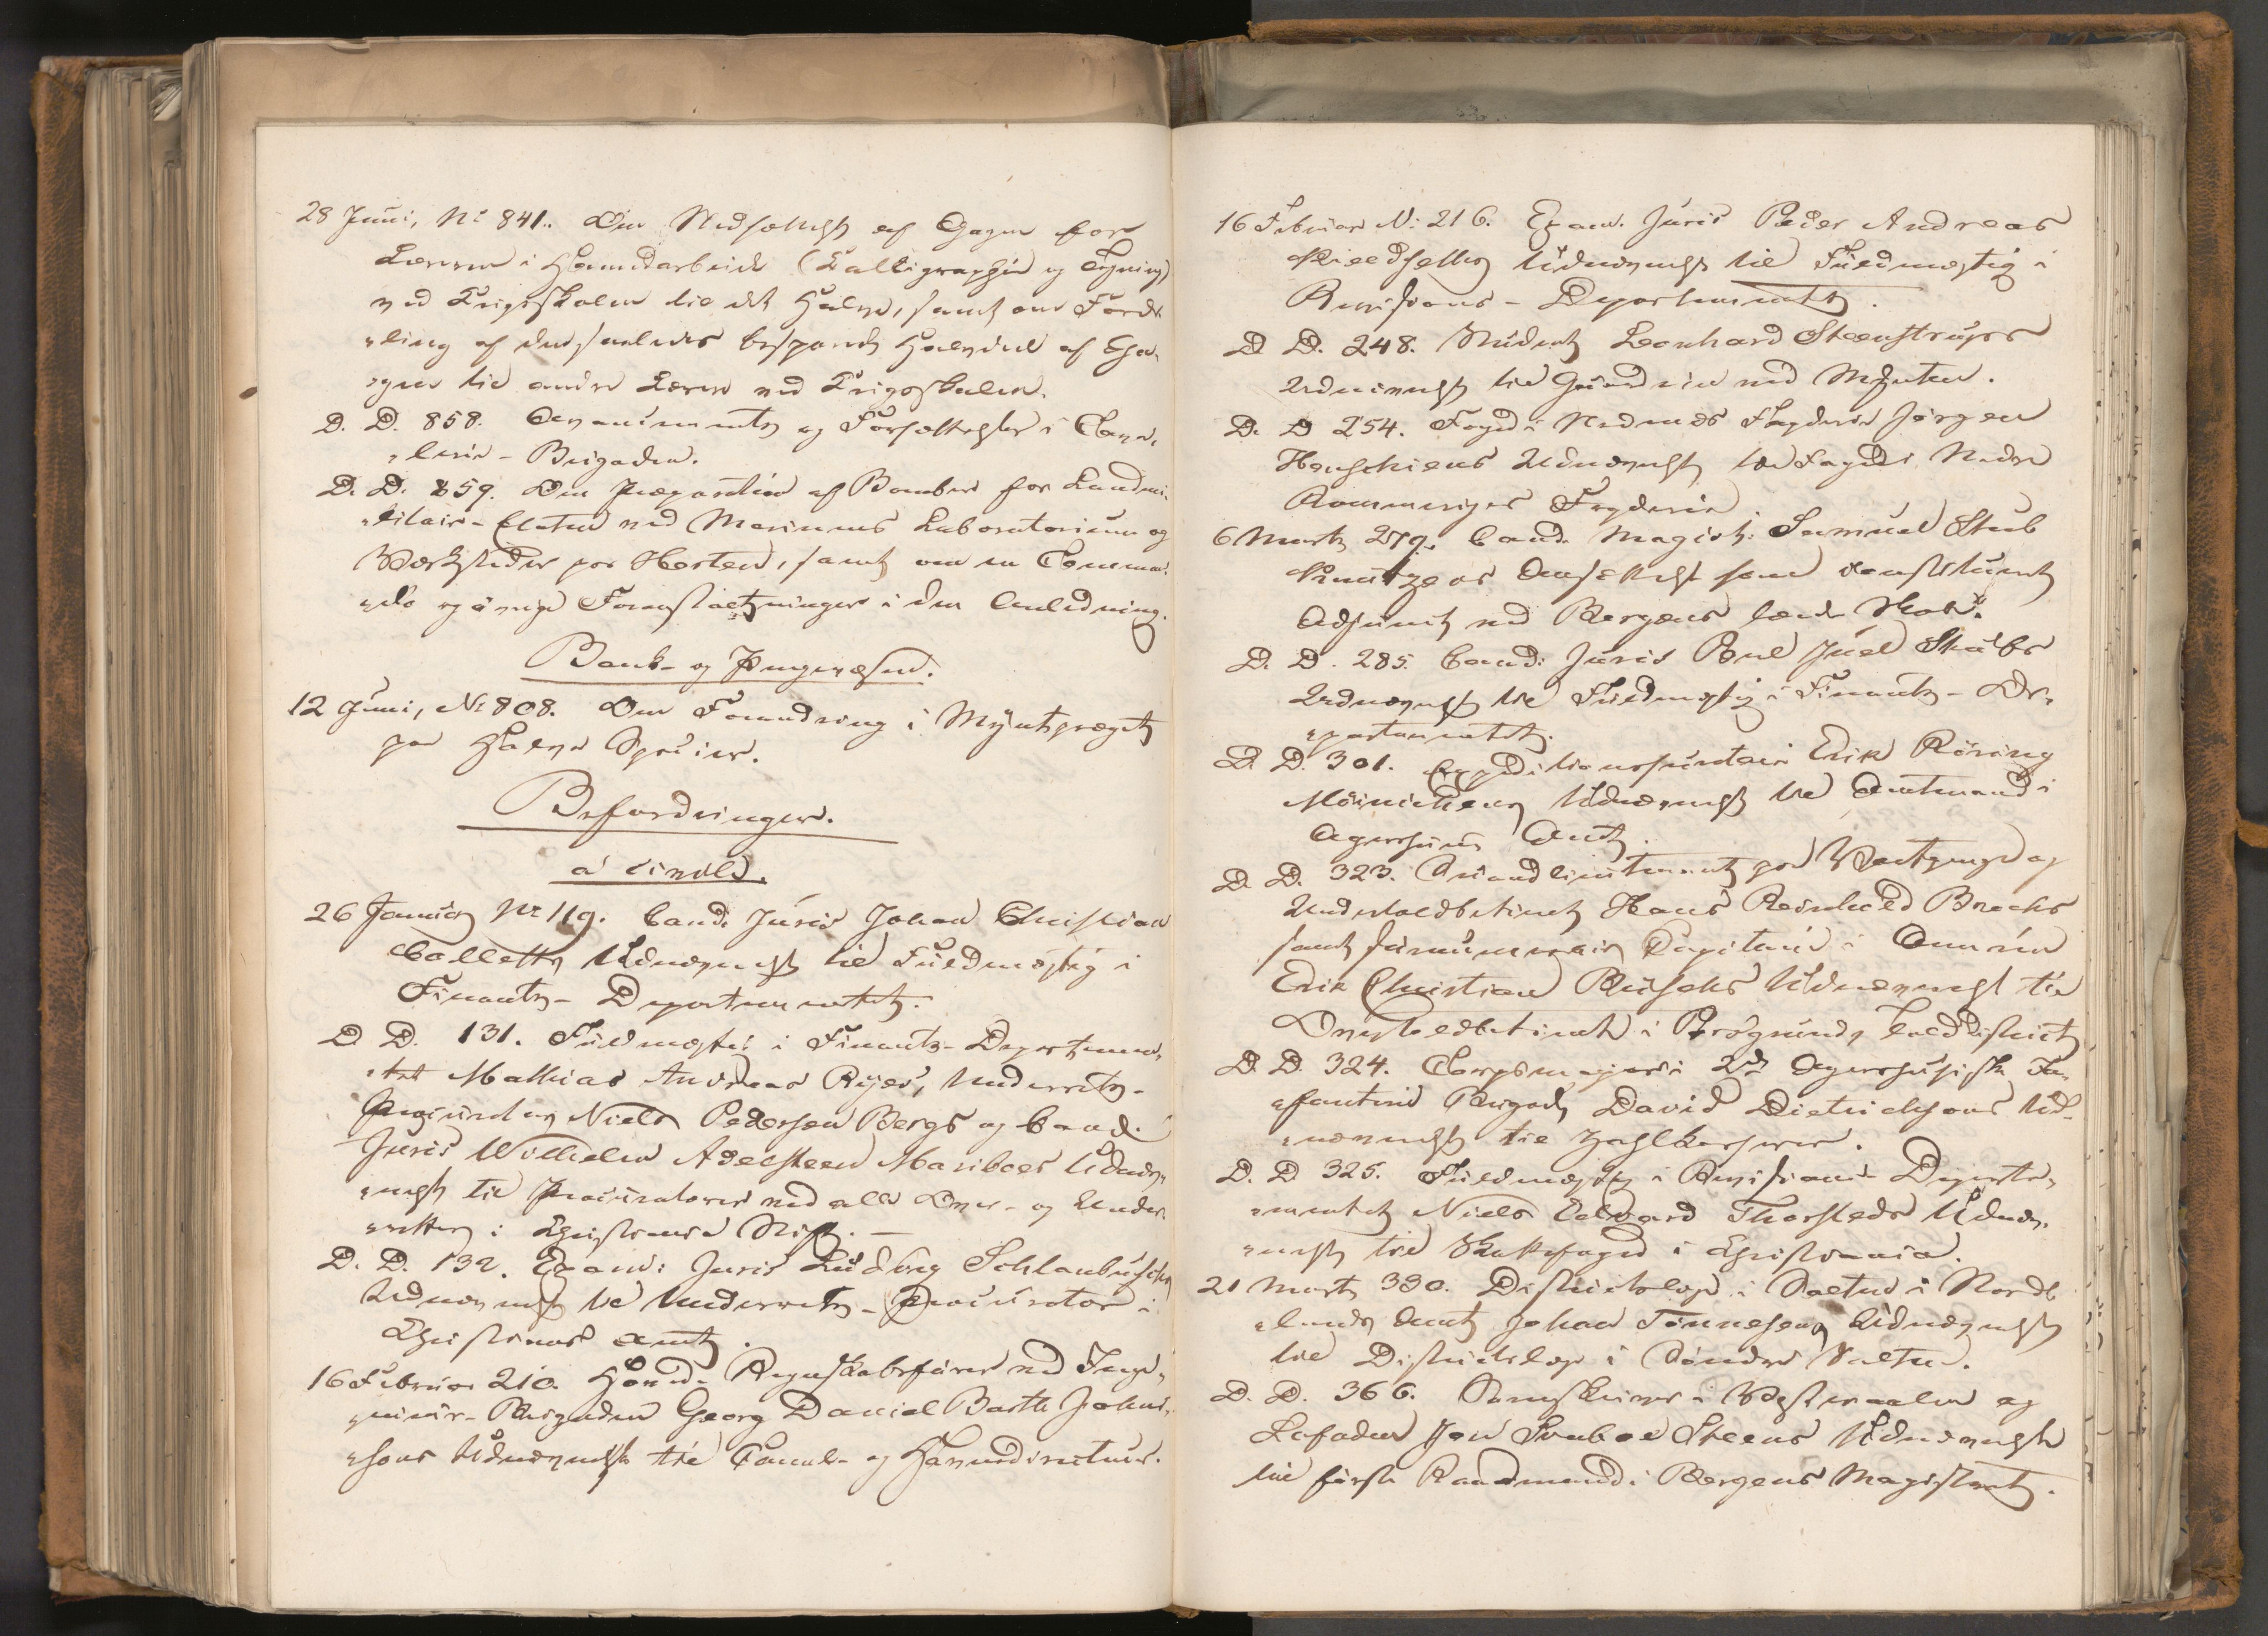 28 Juni, No 841. Om Nedsættelse af Gagen for
Læreren i Haandarbeide (Kalligraphie og Tegning)
ved Krigsskolen til det Halve, samt om Forde-
ling af den saaledes besparede Halvdel af Ga-
gen til andre Lærere ved Krigsskolen.
D. D. 858. Avancements og Forsættelser i Cava-
lerie-Brigaden.
D. D. 859. Om Præparation af Bomber for Landmi-
litair-Etaten ved Marinens Laboratorium og
Værksteder paa Horten, samt om en Comman-
do og øvrige Foranstaltninger i den Anledning.
Bank- og Pengevæsen.
12 Juni, No 808. Om Forandring i Myntpræget
paa Halve Specier.
Befordringer.
a civile.
26 Januar No 119. Cand. Juris Johan Christian
Colletts Udnævnelse til Fuldmægtig i
Finants-Departementet.
D. D. 131. Fuldmægtig i Finants-Departemen-
tet Mathias Andreas Ryes, Underrets-
procurator Niels Pedersen Bergs og Cand.
Juris Wilhelm Adelsteen Mariboes Udnæv-
nelse til Procuratorer ved alle Over- og Under-
retter i Christiania Stift.
D. D. 132. Exam: Juris Ludvig Schlanbusches
Udnævnelse til Underrets-Procurator i
Christians Amt.
16 Februar 210. Hoved-Regnskabsfører ved Inge-
nieur-Brigaden Georg Daniel Barth John-
sons Udnævnelse til Canal- og Havnedirecteur.
16 Februar No 216. Exam. Juris Peder Andreas
Kieldseths Udnævnelse til Fuldmægtig i
Revisions-Departementet.
D. D. 248. Student Leonhard Steenstrups
Udnævnelse til Guardein ved Mynten.
D. D. 254. Foged i Nedenæs Fogderie Jørgen
Henschiens Udnævnelse til Foged i Nedre
Rommeriges Fogderie.
6 Marts 279. Cand. Magist: Samuel Stub
Knutzens Ansættelse som constitueret
Adjunct ved Bergens lærde Skole.
D. D. 285. Cand: Juris Poul Juel Skulbs
Udnævnelse til Fuldmægtig i Finants-De-
partementet.
D. D. 301. Expeditionssecretair Erik Röring
Møinichens Udnævnelse til Amtmand i
Agershuus Amt.
D. D. 323. Secondlieutenant paa Ventepenge og
Undertoldbetjent Hans Reinhold Brechs
samt surnumerair Capitain i Armeen
Erik Christian Buschs Udnævnelse til
Overtoldbetjente i Porsgrunds Tolddistrict.
D. D. 324. Corpsmajor i 2det Agershusiske In-
fanterie Brigade David Dietrichsons Ud-
nævnelse til Zahlkasserer.
D. D. 325. Fuldmægtig i Revisions Departe-
mentet Niels Edvard Thorsteds Udnæv-
nelse til Skattefoged i Christiania.
21 Marts 330. Districtslæge i Salten i Nord-
lands Amt Johan Tönnesens Udnævnelse
til Districtslæge i Söndre Salten.
D. D. 366. Sorenskriver i Vesteraalen og
Lofoden Jon Svaboe Steens Udnævnelse
til förste Raadmand i Bergens Magistrat.